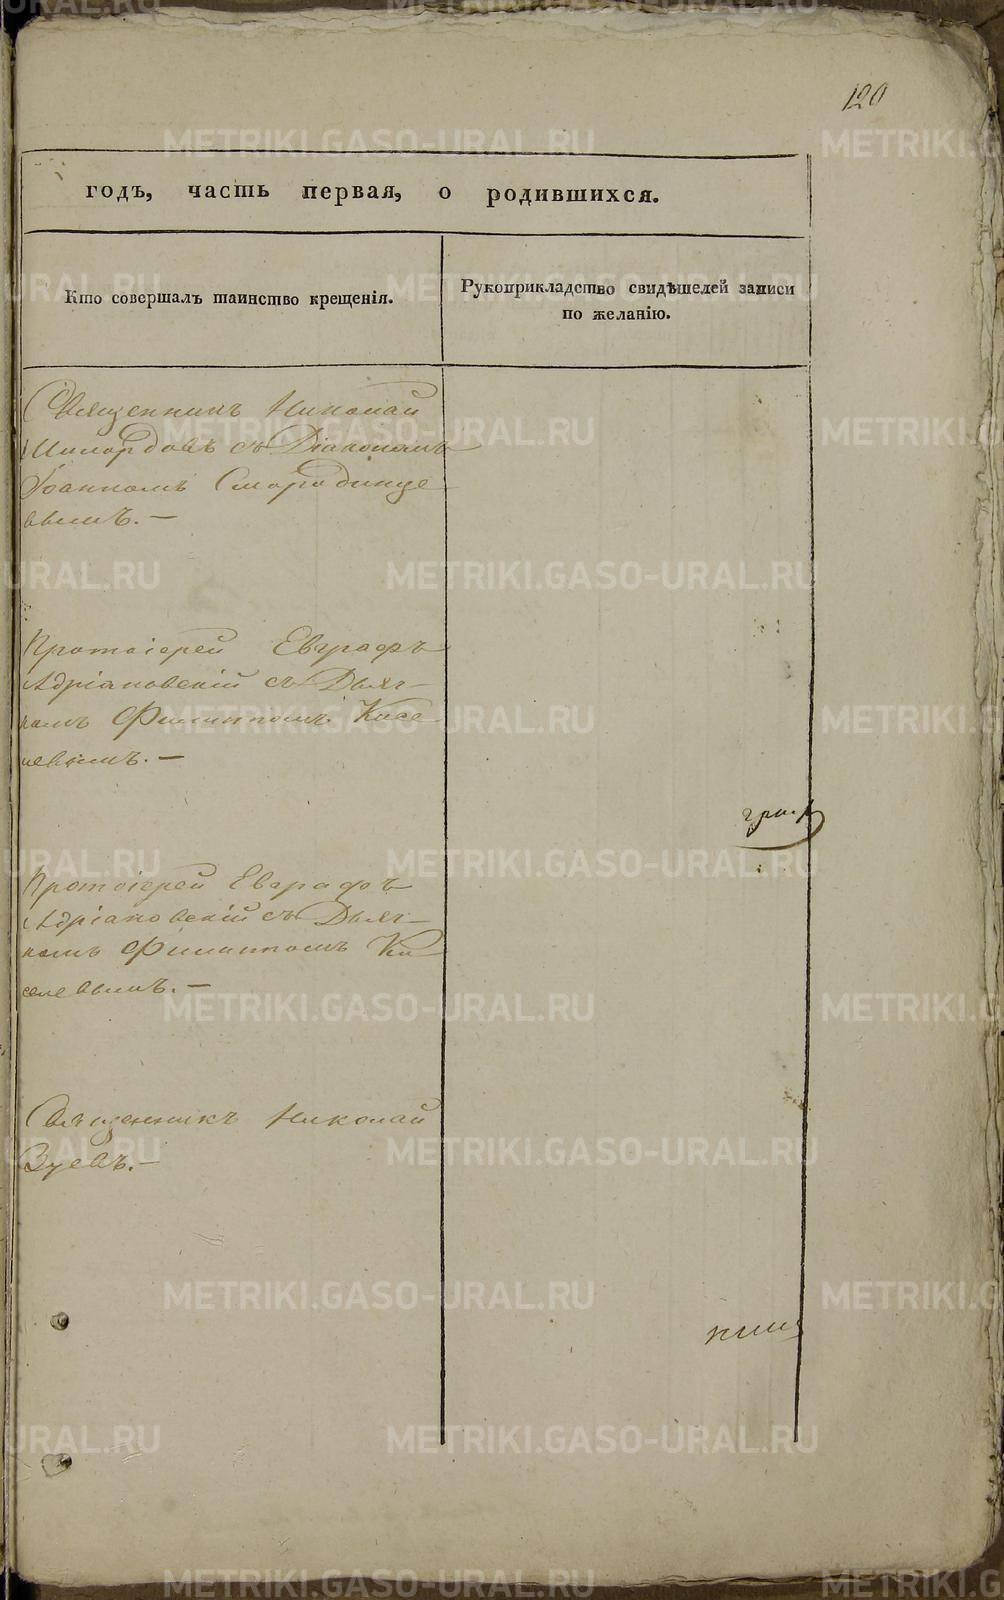 120
годъ, часть первая, о родившихся.
Кто совершалъ таинство крещенія.
Рукоприкладство свидѣтелей записи
по желанію.
Священникъ Николай
съ Діакономъ
Іоанномъ Смородинце
вымъ. —
Протоіерей Евграфъ
Адріановскій съ Дьяч-
комъ Филиппомъ Кисе
левымъ. —
Протоіерей Евграфъ
Адріановскій съ Дьяч-
комъ Филиппомъ Ки-
селевымъ. —
Священникъ Николай
Зуевъ. —
METRIKI.GASO-URAL.RU